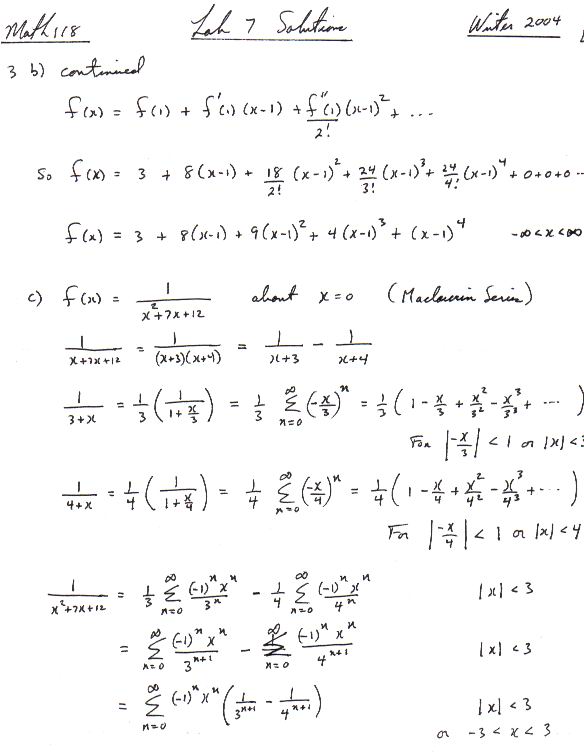 Math 118 Lab 7 Solutions Winter 2004
3 b) continued
f(x) = f(1) + f'(1)(x-1) + f''(1)/2! (x-1)^2 + ...
So f(x) = 3 + 8(x-1) + 18/2! (x-1)^2 + 24/3! (x-1)^3 + 24/4! (x-1)^4 + 0+0+0 ...
f(x) = 3 + 8(x-1) + 9(x-1)^2 + 4(x-1)^3 + (x-1)^4 -∞<x<∞
c) f(x) = 1/(x^2+7x+12) about x=0 (Maclaurin Series)
1/(x+7x+12) = 1/((x+3)(x+4)) = 1/(x+3) - 1/(x+4)
1/(3+x) = 1/3 (1/(1+x/3)) = 1/3 ∑_{n=0}^{∞} (-x/3)^n = 1/3 (1 - x/3 + x^2/3^2 - x^3/3^3 + ... )
For |-x/3| < 1 or |x|<3
1/(4+x) = 1/4 (1/(1+x/4)) = 1/4 ∑_{n=0}^{∞} (-x/4)^n = 1/4 (1 - x/4 + x^2/4^2 - x^3/4^3 + ... )
For |-x/4| < 1 or |x|<4
1/(x^2+7x+12) = 1/3 ∑_{n=0}^{∞} (-1)^n x^n/3^n - 1/4 ∑_{n=0}^{∞} (-1)^n x^n/4^n |x|<3
= ∑_{n=0}^{∞} (-1)^n x^n/3^{n+1} - ∑_{n=0}^{∞} (-1)^n x^n/4^{n+1} |x|<3
= ∑_{n=0}^{∞} (-1)^n x^n (1/3^{n+1} - 1/4^{n+1}) |x|<3
or -3<x<3